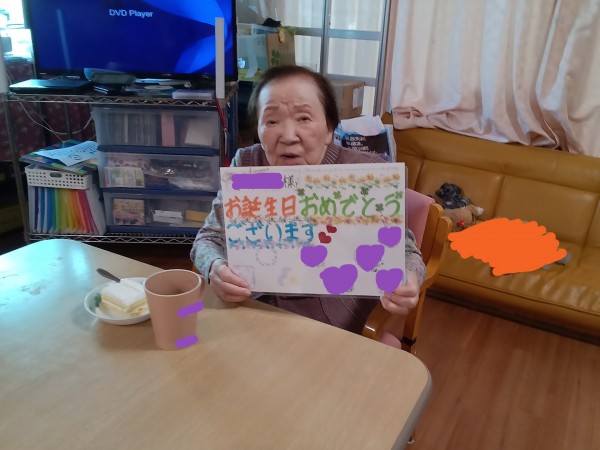 DVD Player
様
お誕生日おめでとう
ございます